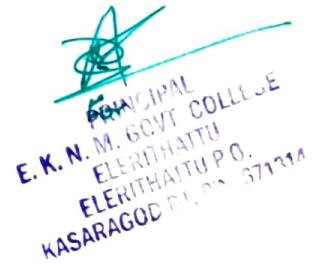 PRINCIPAL
E. K. N. M. GOVT COLLEGE
ELERITHATTU
ELERITHATTU P.O.
KASARAGOD DT, PIN 671314